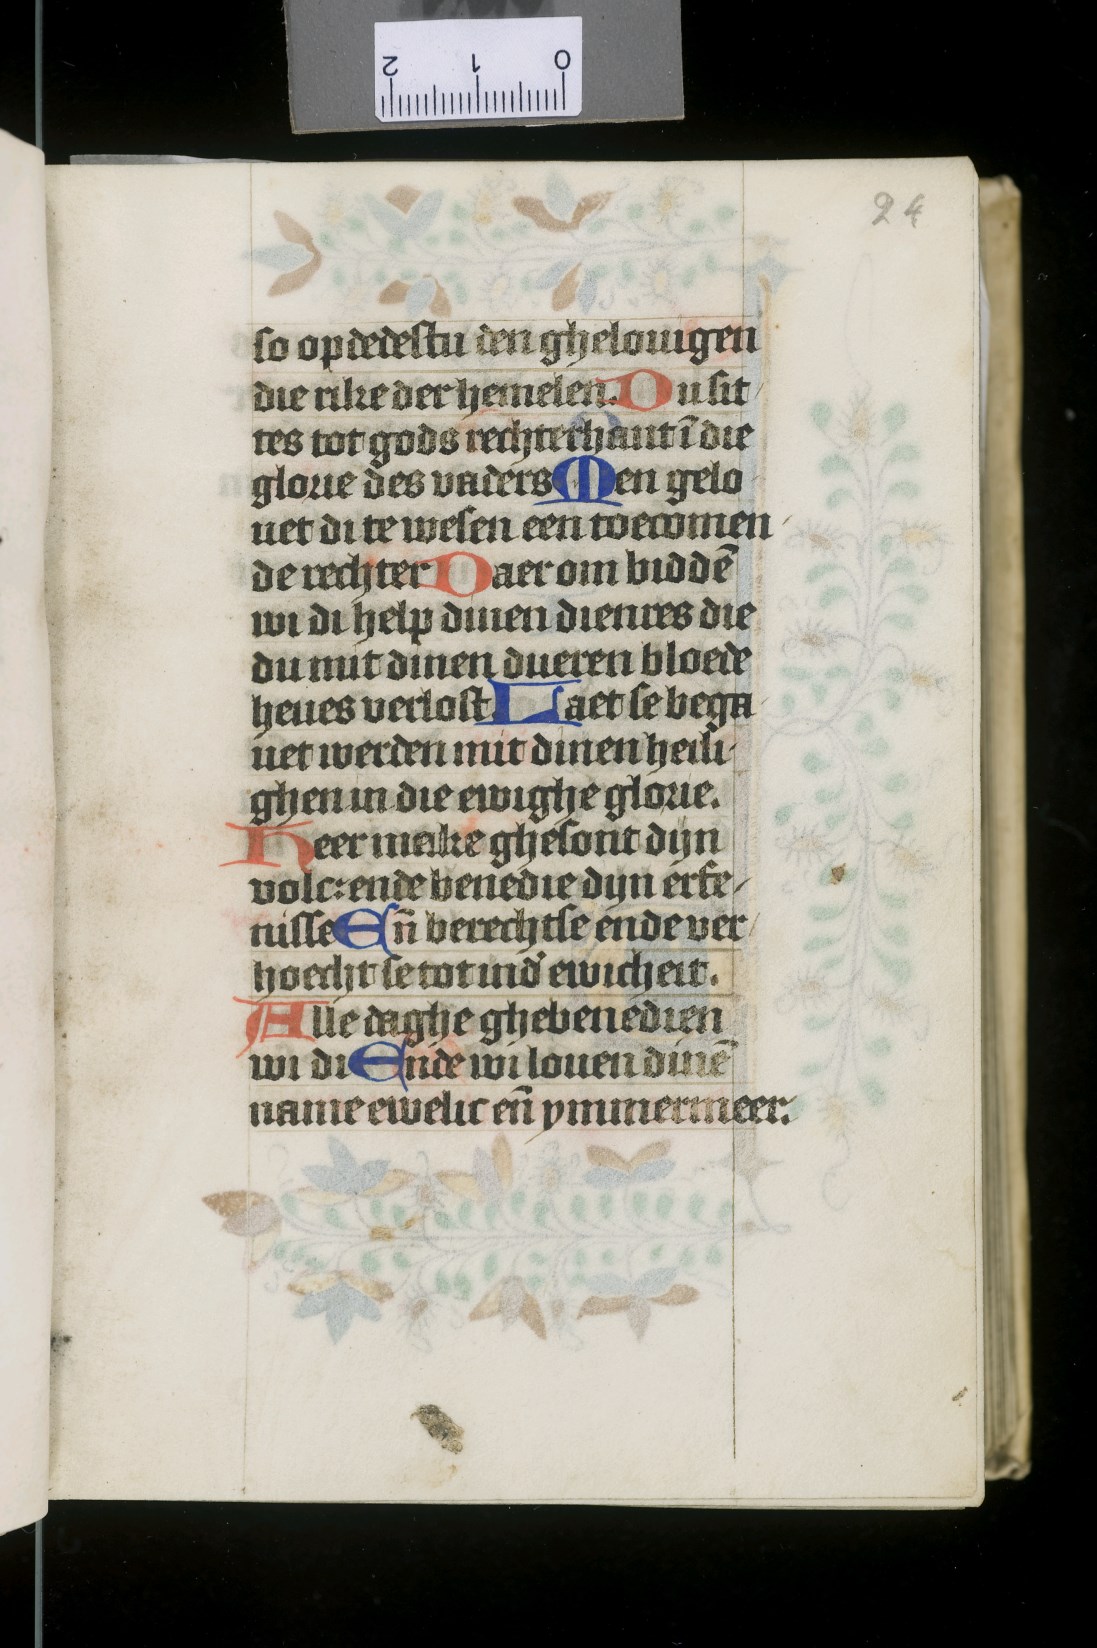 2 1 0
24
so opdedestu den ghelouigen
die rike der hemelen. Du sit
tes tot gods rechterhant ī die
glorie des vaders Men gelo
uet di te wesen een toecomen
de rechter Daer om biddē
wi di help dinen dienres die
du mit dinen dueren bloede
heues verlost. Laet se bega
uet werden mit dinen heili
ghen in die ewighe glorie.
Heer make ghesont dijn
volc: ende benedie dijn erfe
nisse Eñ berechtse ende ver
hoecht se tot ind' ewicheit.
Alle daghe ghebenedien
wi di Ende wi louen dinē
name ewelic eñ ymmermeer.